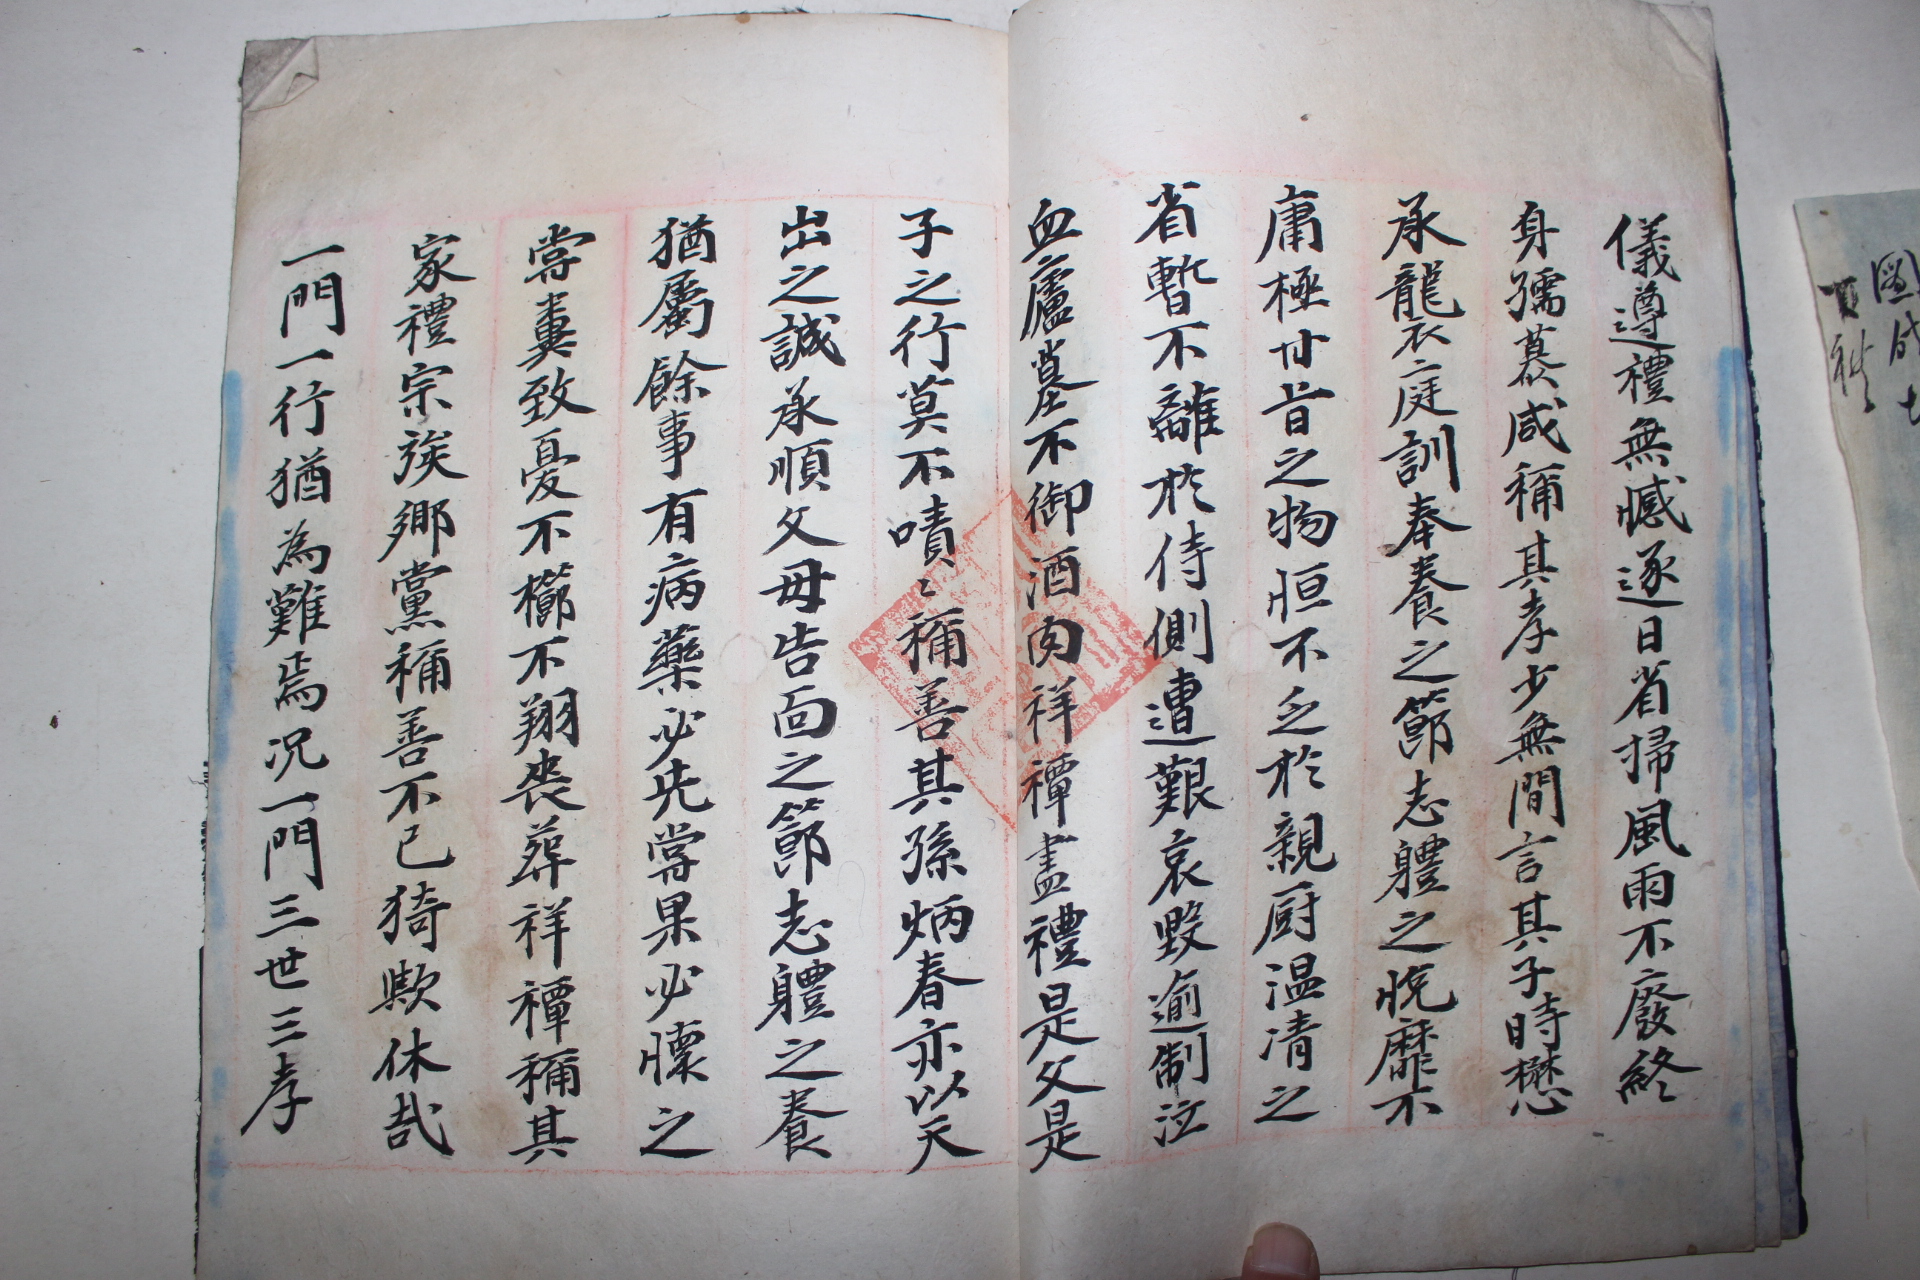 儀遵禮無憾逐日省掃風雨不廢終
身孺慕咸稱其孝少無間言其子時懋
承龍衣庭訓奉養之節志體之悅靡不
庸極甘旨之物恒不乏於親厨温清之
省暫不離於侍側遭艱哀毀逾制泣
血廬墓不御酒肉祥禫盡禮是父是
子之行莫不嘖〻稱善其孫炳春亦以天
出之誠承順父母告面之節志體之養
猶屬餘事有病藥必先嘗果必懷之
嘗糞致憂不櫛不翔喪葬祥禫稱其
家禮宗族鄉黨稱善不已猗歟休哉
一門一行猶為難焉况一門三世三孝